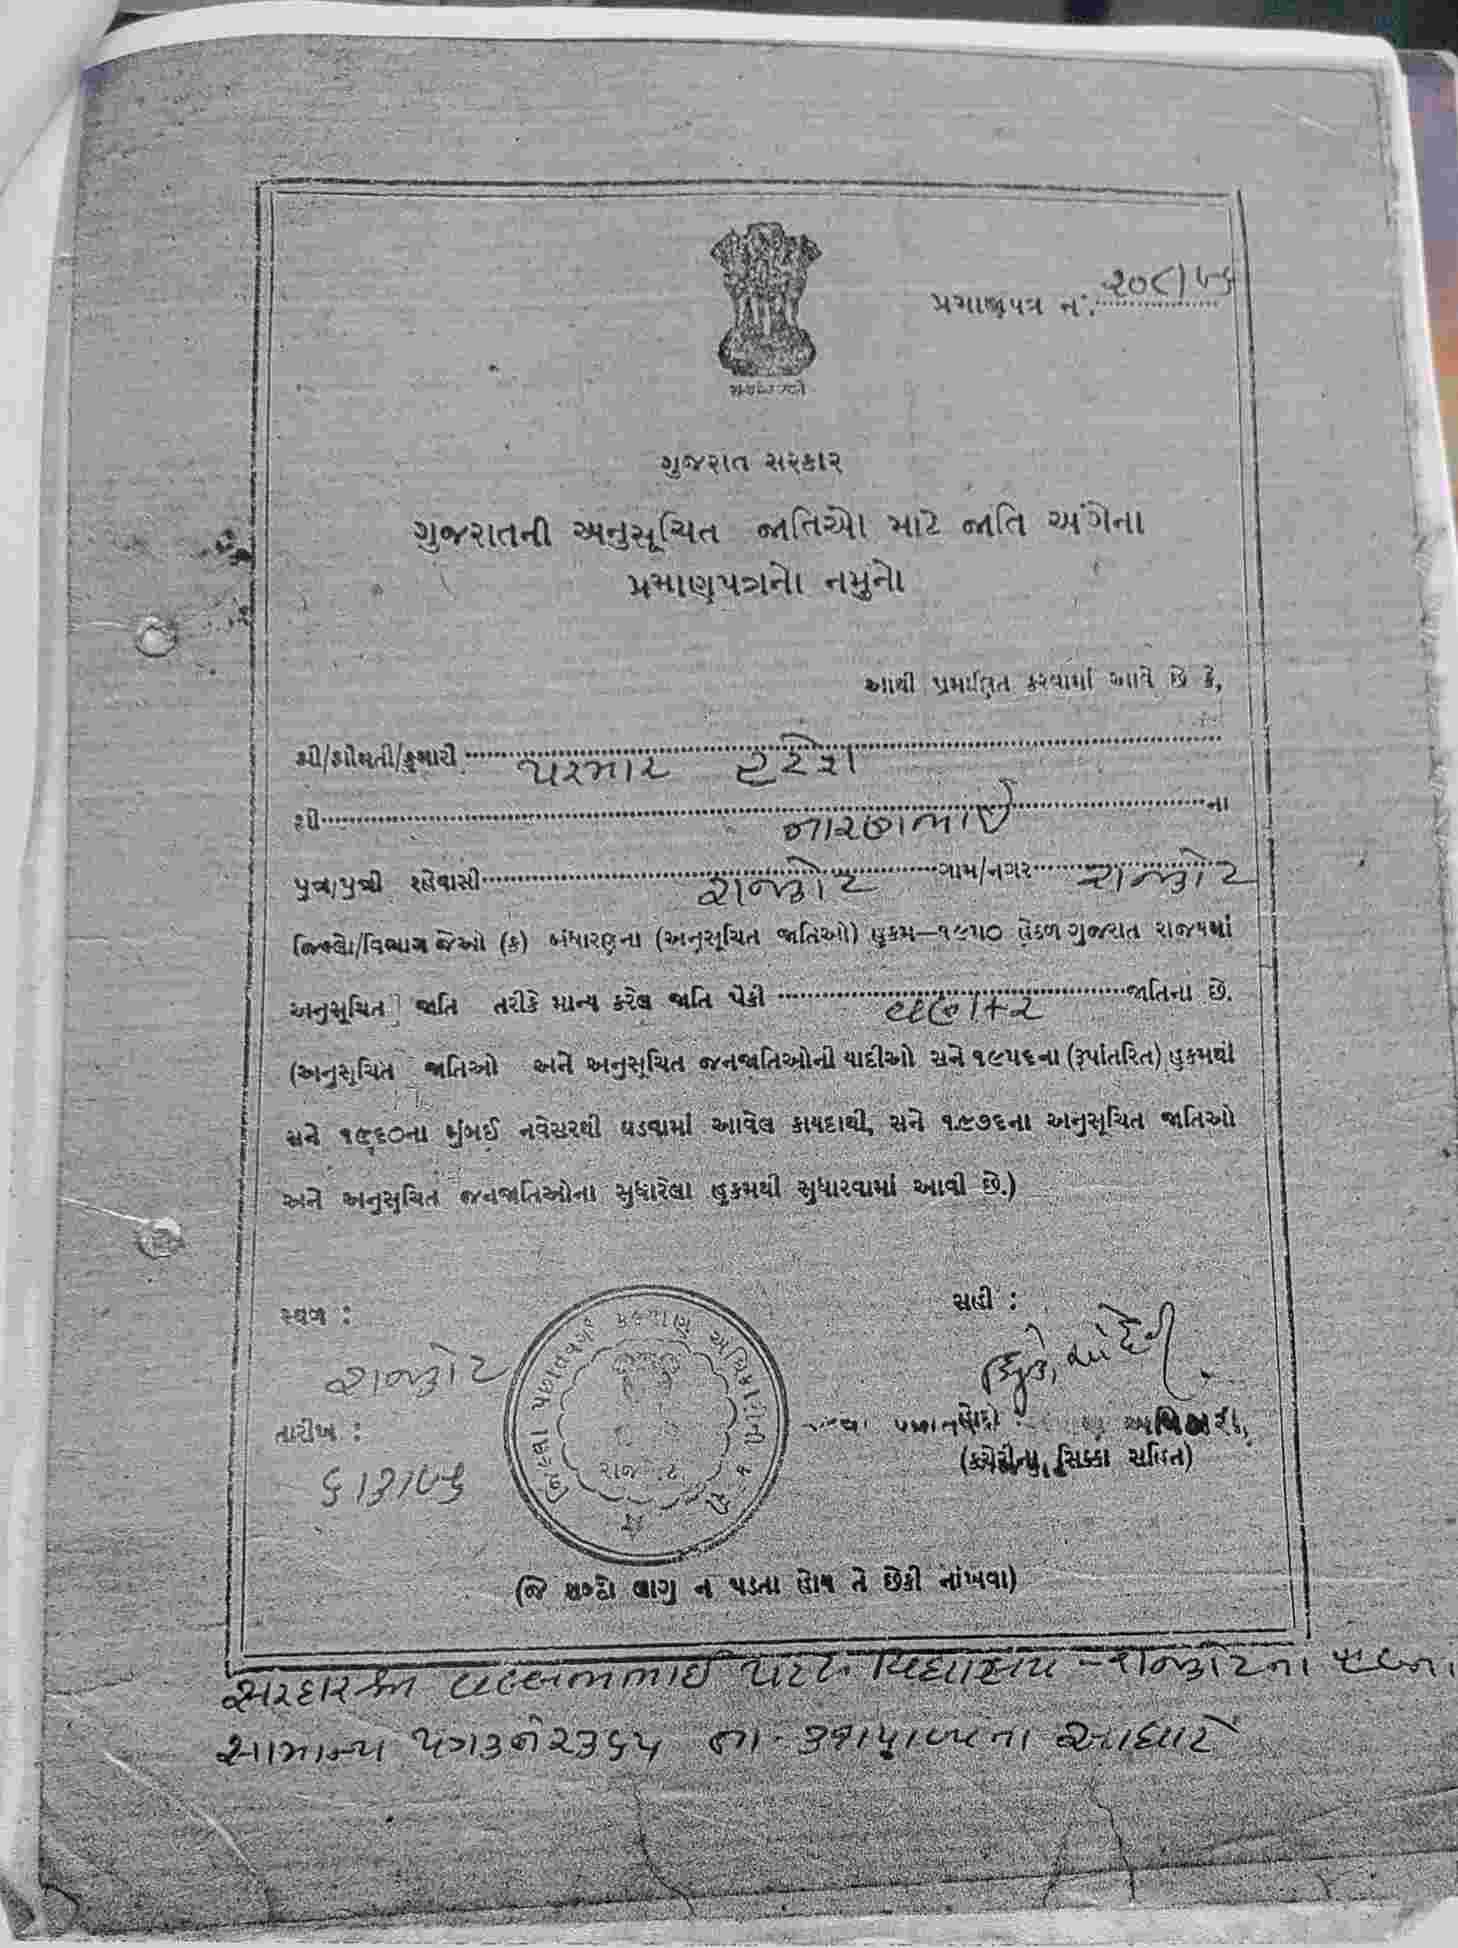 પ્રમાણપત્ર નં. ૨૦૮/૫૬
સત્યમેવ જયતે
ગુજરાત સરકાર
ગુજરાતની અનુસૂચિત જાતિઓ માટે જાતિ અંગેના
પ્રમાણપત્રનો નમુનો
આથી પ્રમાણિત કરવામાં આવે છે કે,
શ્રી/શ્રીમતી/કુમારી પરમાર હરેશ
શ્રી નારણભાઈ ના
પુત્ર/પુત્રી રહેવાસી રાજકોટ ગામ/નગર રાજકોટ
જિલ્લો/વિભાગ જેઓ (ક) બંધારણના (અનુસૂચિત જાતિઓ) હુકમ—૧૯૫૦ હેઠળ ગુજરાત રાજયમાં
અનુસૂચિત જાતિ તરીકે માન્ય કરેલ જાતિ પૈકી વણકર જાતિના છે.
(અનુસૂચિત જાતિઓ અને અનુસૂચિત જનજાતિઓની યાદીઓ સને ૧૯૫૬ના (રૂપાંતરિત) હુકમથી
સને ૧૯૬૦ના મુંબઈ નવેસરથી ઘડવામાં આવેલ કાયદાથી, સને ૧૯૭૬ના અનુસૂચિત જાતિઓ
અને અનુસૂચિત જનજાતિઓના સુધારેલા હુકમથી સુધારવામાં આવી છે.)
સ્થળ :
રાજકોટ
તારીખ :
સહી :
જિલ્લા પછાતવર્ગ કલ્યાણ અધિકારીની કચેરી
રાજકોટ
હોદ્દો : અધિકારી,
(કચેરીના સિક્કા સહિત)
(જે શબ્દો લાગુ ન પડતા હોય તે છેકી નાંખવા)
સરદારશ્રી વલ્લભભાઈ પટેલ વિદ્યાલય - રાજકોટના
સામાન્ય ના આધારે